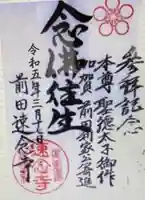 参拝記念
本尊 聖徳太子御作
加賀 前田利家公寄進
念佛往生
令和五年三月七日
前田速念寺